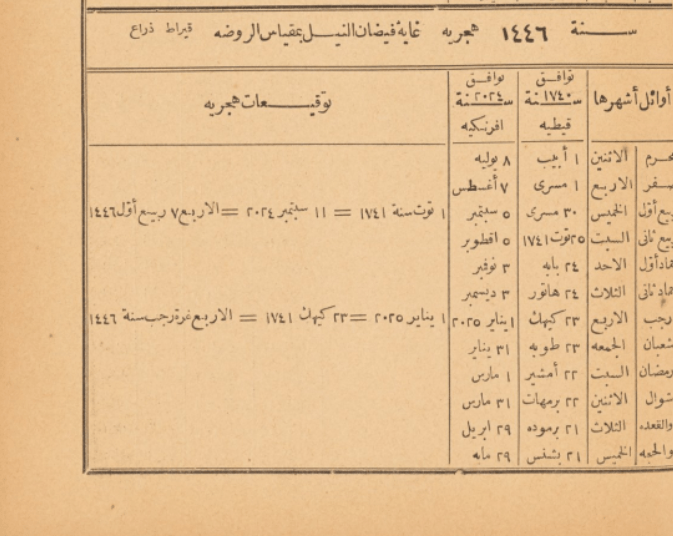 سنة ١٤٤٦ هجريه غاية فيضان النيل بمقياس الروضه قيراط ذراع
أوائل أشهرها توافق سنة ١٧٤٠ قبطيه توافق سنة ٢٠٢٤ افرنكيه توقيعات هجريه
محرم الاثنين ١ أبيب ٨ يوليه
صفر الاربع ١ مسرى ٧ أغسطس
ربيع أول الخميس ٣٠ مسرى ٥ سبتمبر ١ توت سنة ١٧٤١ = ١١ سبتمبر ٢٠٢٤ = الاربع ٧ ربيع أول ١٤٤٦
ربيع ثانى السبت ٢٥ توت ١٧٤١ ٥ اقطوبر
جماد أول الاحد ٢٤ بابه ٣ نوفمبر
جماد ثانى الثلاث ٢٤ هاتور ٣ ديسمبر
رجب الاربع ٢٣ كيهك ١ يناير ٢٠٢٥ ١ يناير ٢٠٢٥ = ٢٣ كيهك ١٧٤١ = الاربع غرة رجب سنة ١٤٤٦
شعبان الجمعه ٢٣ طوبه ٣١ يناير
رمضان السبت ٢٢ أمشير ١ مارس
شوال الاثنين ٢٢ برمهات ٣١ مارس
والقعده الثلاث ٢١ برموده ٢٩ ابريل
والحجه الخميس ٢١ بشنس ٢٩ مايه